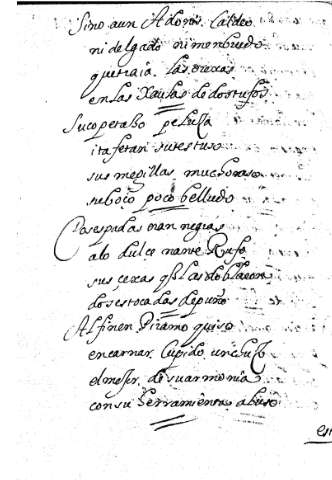 Sino aun Adonis, Caldeo
ni delgado ni menbrudo
que traia las orexas
en las Xaulas de dos tufos
Su copetaso peluça
i tafetan su testuso
sus megillas mucho raso
su boço poco belludo
Dos espadas eran negras
alo dulce mante Rufo
sus çexas q̃ las doblaron
dos estocadas de puño
Al fin en Piramo quiso
encarnar, Cupido, un chuzo
el mejor, de su armonia
con su herramienta al uso